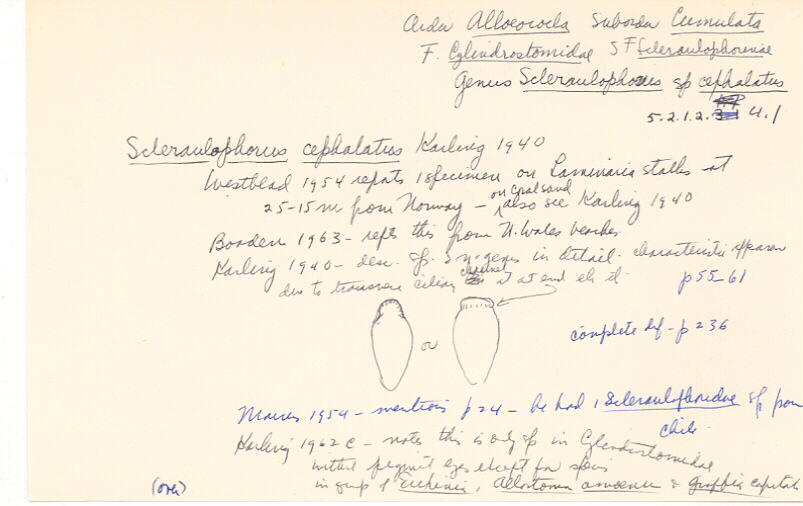 Order Alloeocoela Suborder Cumulata
F. Cylindrostomidae SF Scleraulophorinae
Genus Scleraulophorus sp cephalatus
5.2.1.2. 4.1
Scleraulophorus cephalatus Karling 1940
Westblad 1954 reports 1 specimen on Laminaria stalks at
25-15 m from Norway - on coral sand also see Karling 1940
Boaden 1963 - repts this from N. Wales beaches.
Karling 1940 - desc. sp. & n. genus in detail. characteristic appearan
due to transverse ciliary channel at end p 55-61
or
complete def - p 236
Marcus 1954 - mentions p 24 - he had 1 Scleraulophoridae sp from
Chile
Karling 1962 c - notes this is only sp in Cylindrostomidae
without pigment eyes except for spms
in grup of Euxinia, Allostoma amoenum & Graffia capitata
(over)